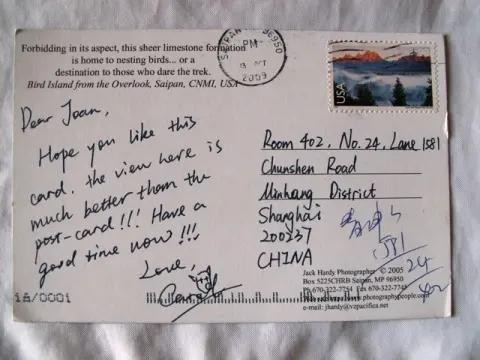 Forbidding in its aspect, this sheer limestone formation
is home to nesting birds... or a
destination to those who dare the trek.
Bird Island from the Overlook, Saipan, CNMI, USA
SAIPAN 96950
PM
OCT
2009
USA
Dear Joan,
Hope you like this
card. the view here is
much better than the
post-card!!! Have a
good time now!!!
Love,
Room 402, No.24, Lane 1581
Chunshen Road
Minhang District
Shanghai
200237
CHINA
1581
24
402
Jack Hardy Photographer © 2005
Box 5225CHRB Saipan, MP 96950
Ph 670-322-7754 Fax 670-322-7745
www.photographypeople.com
e-mail: jhardy@vzpacifica.net
1A/0001